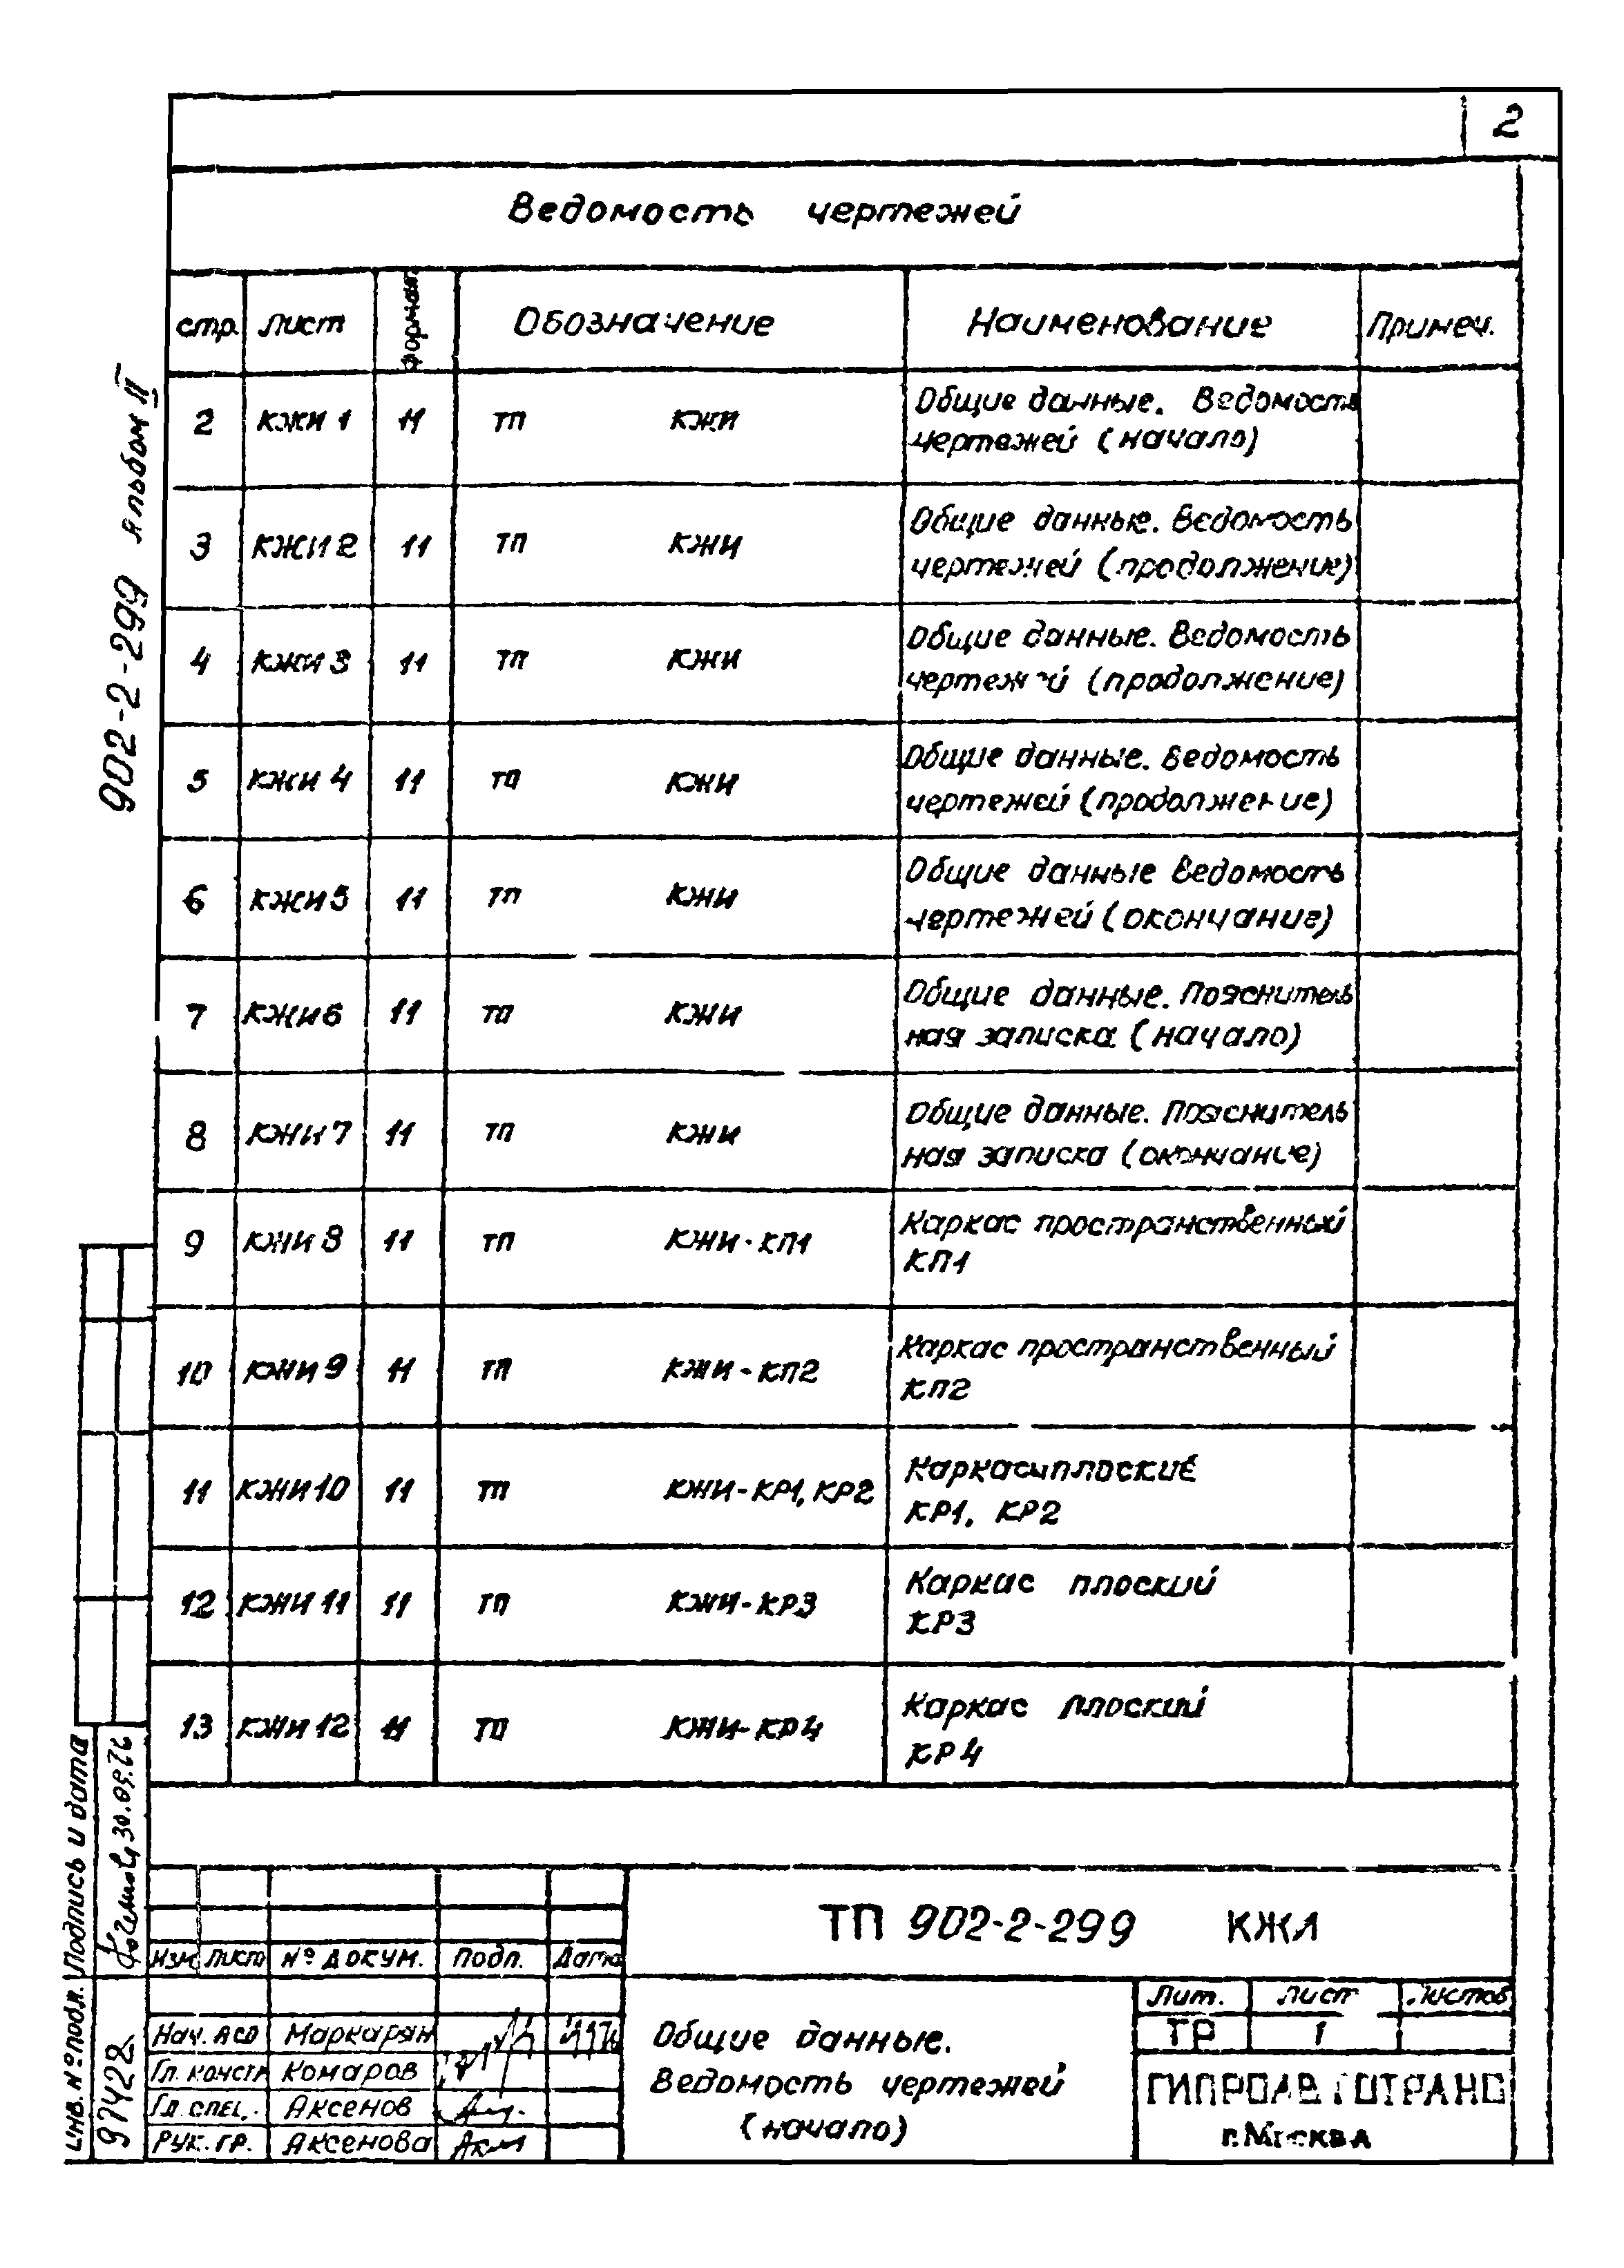 2
Ведомость чертежей
стр. лист формат Обозначение Наименование Примеч.
2 КЖИ 1 11 ТП КЖИ Общие данные. Ведомость
чертежей (начало)
3 КЖИ 2 11 ТП КЖИ Общие данные. Ведомость
чертежей (продолжение)
4 КЖИ 3 11 ТП КЖИ Общие данные. Ведомость
чертежей (продолжение)
5 КЖИ 4 11 ТП КЖИ Общие данные. Ведомость
чертежей (продолжение)
6 КЖИ 5 11 ТП КЖИ Общие данные Ведомость
чертежей (окончание)
7 КЖИ 6 11 ТП КЖИ Общие данные. Пояснитель
ная записка (начало)
8 КЖИ 7 11 ТП КЖИ Общие данные. Пояснитель
ная записка (окончание)
9 КЖИ 8 11 ТП КЖИ-КП1 Каркас пространственный
КП1
10 КЖИ 9 11 ТП КЖИ-КП2 Каркас пространственный
КП2
11 КЖИ 10 11 ТП КЖИ-КР1, КР2 Каркасы плоские
КР1, КР2
12 КЖИ 11 11 ТП КЖИ-КР3 Каркас плоский
КР3
13 КЖИ 12 11 ТП КЖИ-КР4 Каркас плоский
КР4
902-2-299 Альбом II
Инв. № подл. Подпись и дата
97422 30.09.76
ТП 902-2-299 КЖИ
Изм Лист № докум. Подп. Дата
Нач. АСО Маркарян
Гл. констр Комаров
Гл. спец. Аксенов
Рук. гр. Аксенова
Общие данные.
Ведомость чертежей
(начало)
Лит. Лист Листов
ТР 1
ГИПРОАВТОТРАНС
г. Москва